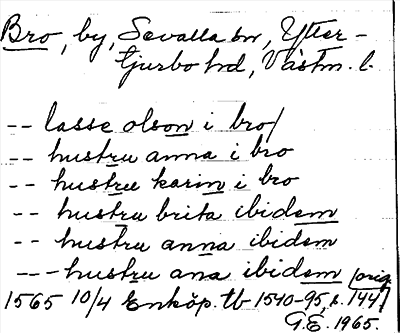 Bro, by, Sevalla sn, Ytter-
tjurbo hd, Västm. l.
-- lasse olson i bro/
-- hustru anna i bro
-- hustru karin i bro
-- hustru brita ibidem
-- hustru anna ibidem
--- hustru ana ibidem /orig.
1565 10/4 Enköp. tb 1540-95, s. 144/
G.E. 1965.